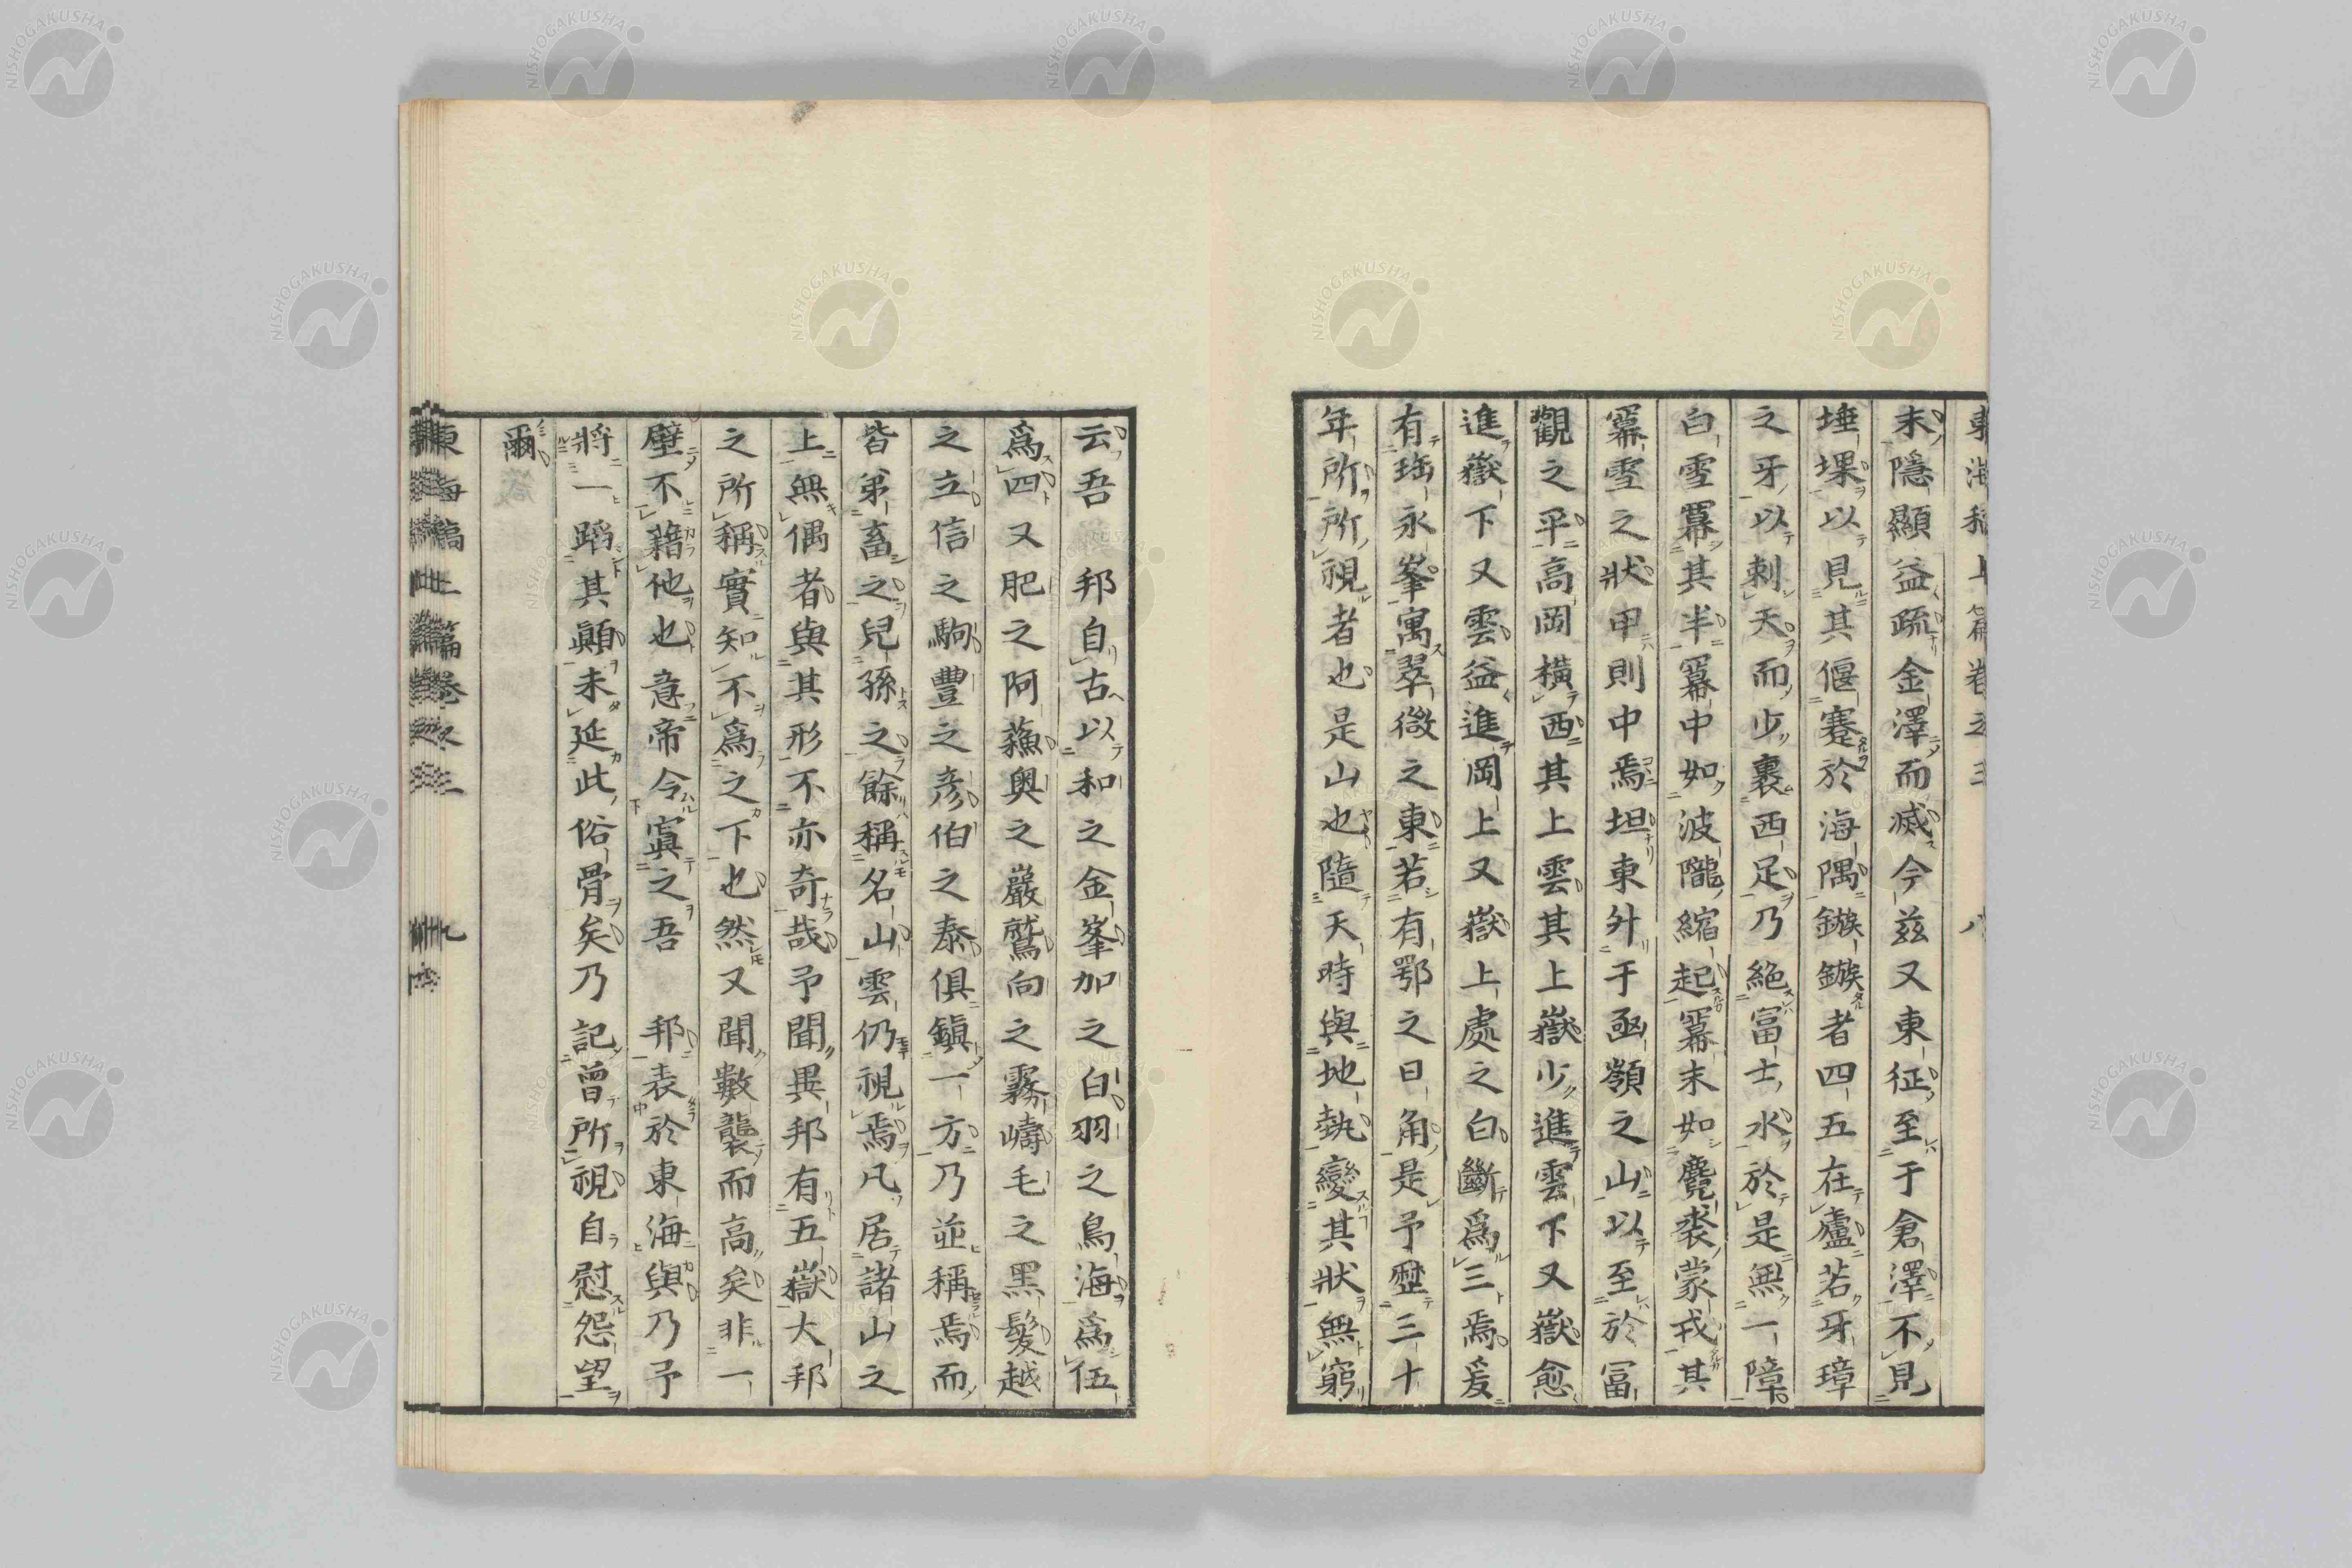 末隱顯益疏金澤而滅今茲又東征至于倉澤不見
埵堁以見其偃蹇於海隅鏃鏃者四五在廬若牙璋
之牙以刺天而少裹西足乃絶富士水於是無一障
白雪羃其半羃中如波隴縮起羃末如麑裘蒙戎其
羃雪之狀申則中焉坦東外于函嶺之山以至於冨
觀之平高岡橫西其上雲其上嶽少進雲下又嶽愈
進嶽下又雲益進岡上又嶽上處之白斷爲三焉爰
有瑇永峯寓翠微之東若有鄂之日角是予歷三十
年所所視者也是山也隨天時與地埶變其狀無窮
云吾邦自古以和之金峯加之白羽之鳥海爲伍
爲四又肥之阿蘓奥之巖鷲向之霧嶹毛之黑髮越
之立信之駒豐之彥伯之泰俱鎭一方乃並稱焉而
皆弟畜之兒孫之餘稱名山雲仍視焉凡居諸山之
上無偶者與其形不亦奇哉予聞異邦有五嶽大邦
之所稱實知不爲之下也然又聞數襲而高矣非一
壁不藉他也意帝令寘之吾 邦表於東海與乃予
將一蹈其顚未延此俗骨矣乃記曾所視自慰怨望
爾
東海稿上篇卷之三